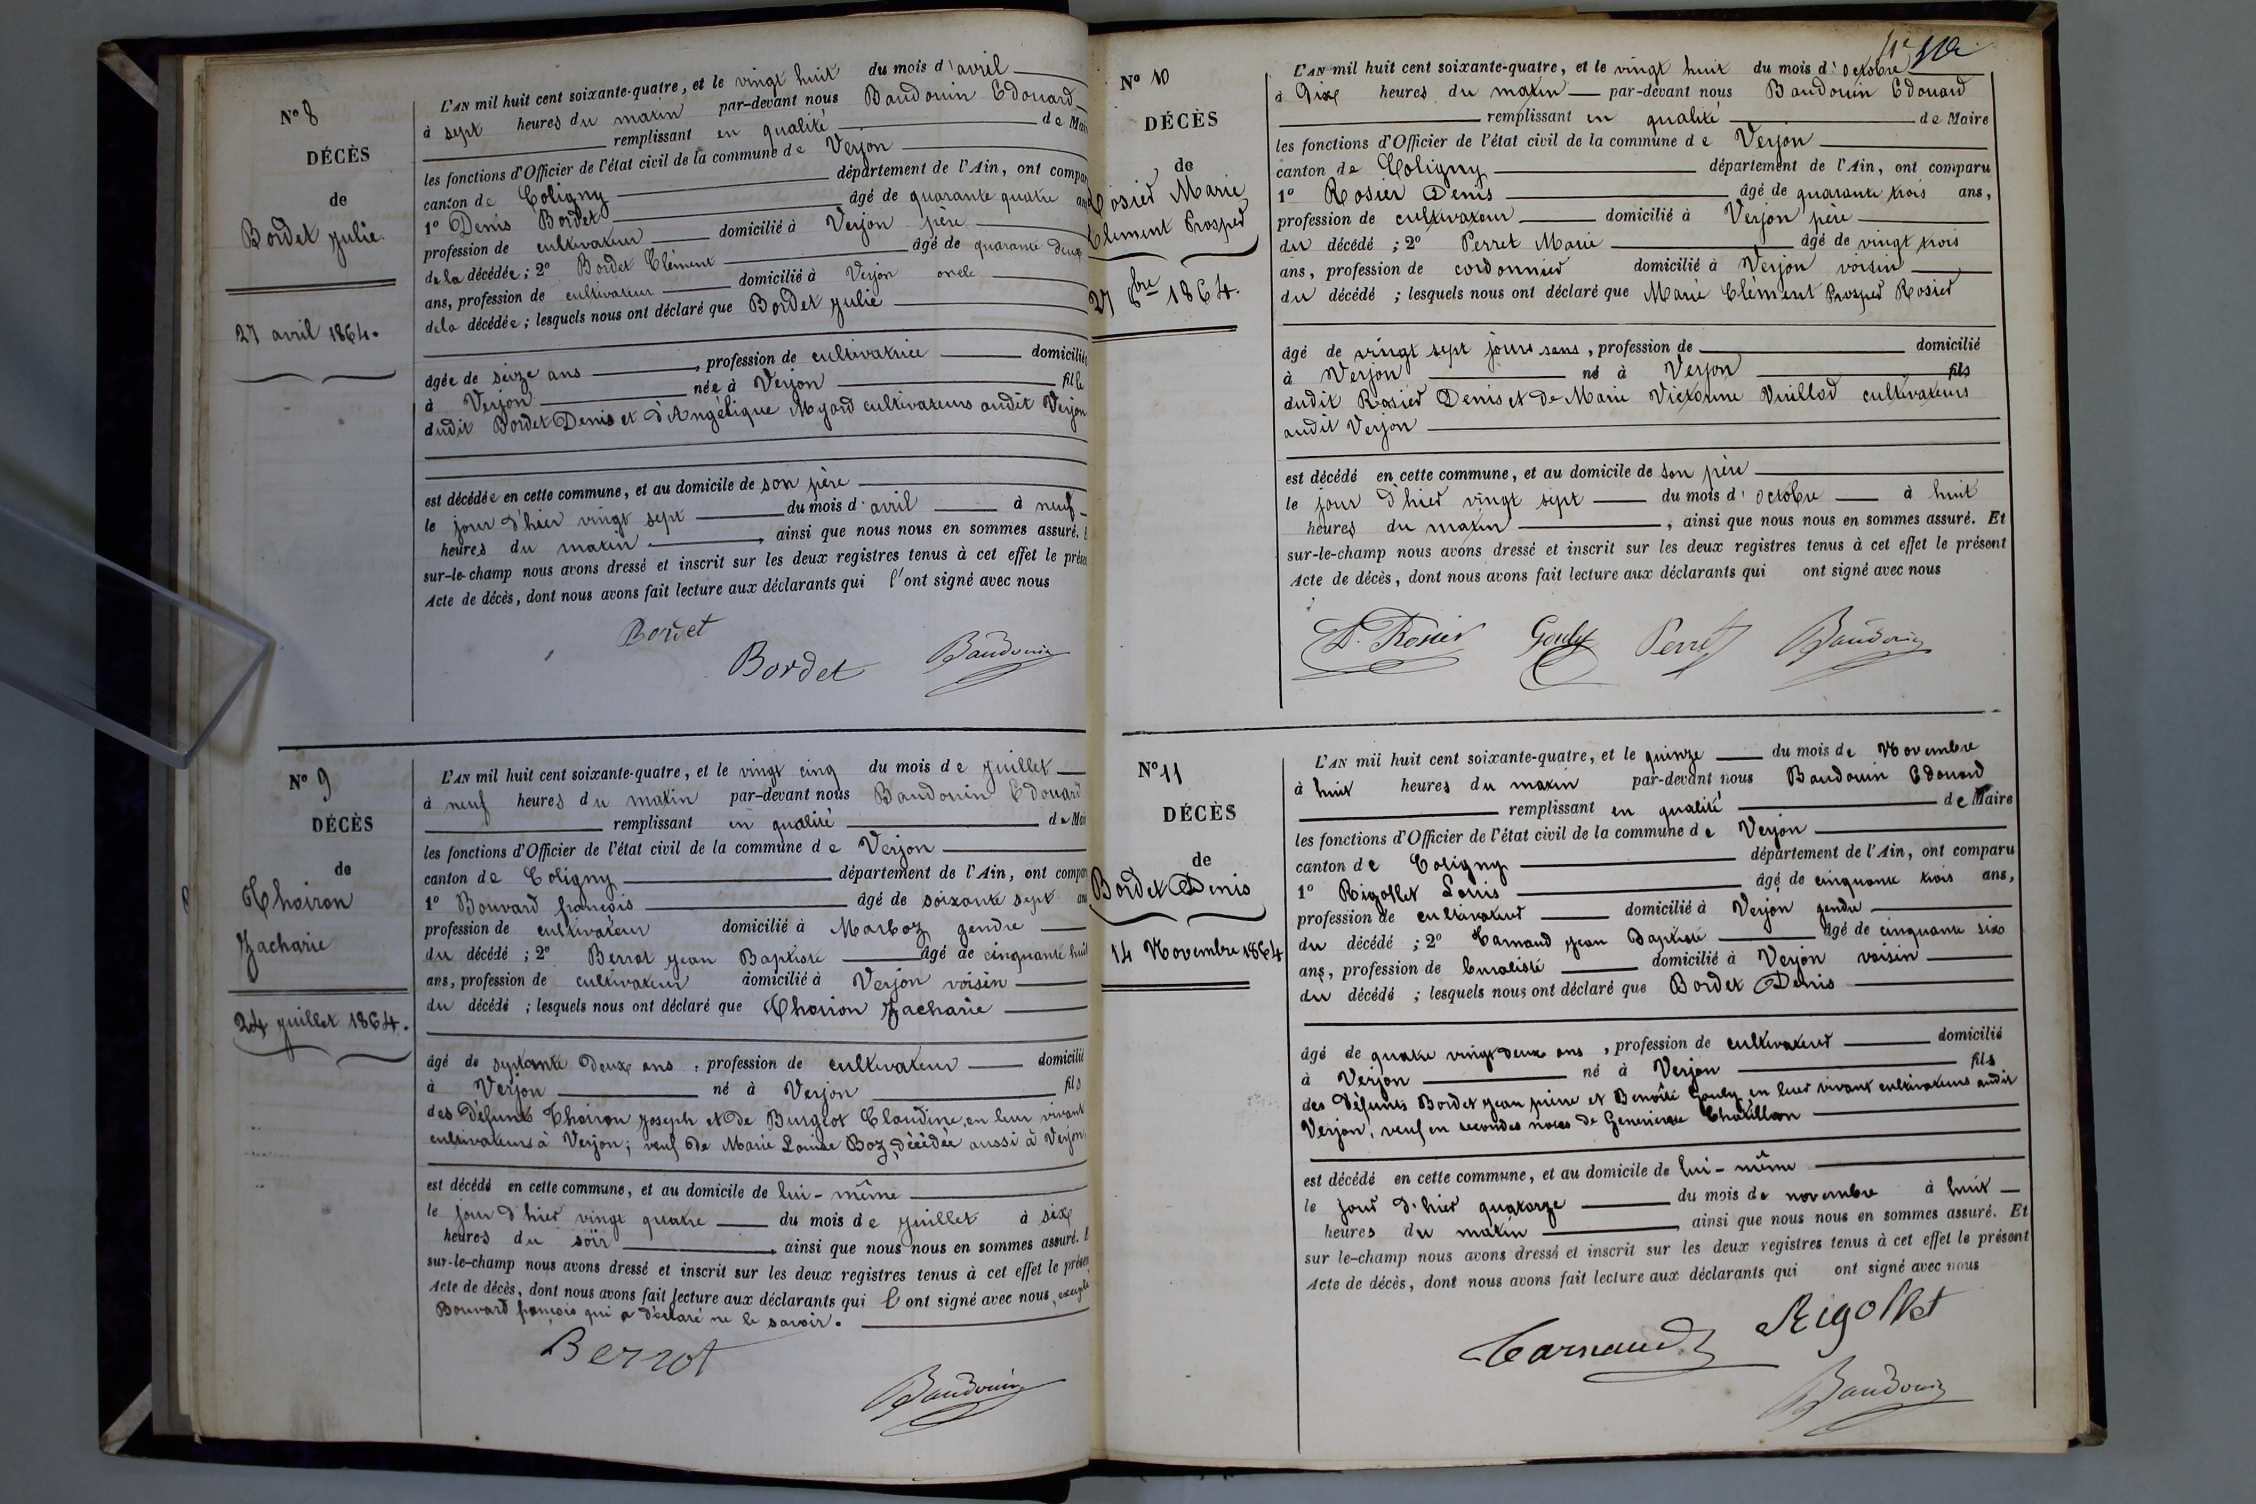 N° 8
DÉCÈS
de
Bordet Julie
27 avril 1864.
L'AN mil huit cent soixante-quatre, et le vingt huit du mois d'avril
à sept heures du matin par-devant nous Baudouin Edouard
remplissant en qualité de Mair
les fonctions d'Officier de l'état civil de la commune de Verjon
canton de Coligny département de l'Ain, ont compar
1° Denis Bordet âgé de quarante quatre ans
profession de cultivateur domicilié à Verjon père
de la décédée ; 2° Bordet Clément âgé de quarante deux
ans, profession de cultivateur domicilié à Verjon oncle
de la décédée ; lesquels nous ont déclaré que Bordet Julie
âgée de seize ans, profession de cultivatrice domiciliée
à Verjon née à Verjon fille
dudit Bordet Denis et d'Angélique Myard cultivateurs audit Verjon
est décédée en cette commune, et au domicile de son père
le jour d'hier vingt sept du mois d'avril à neuf
heures du matin, ainsi que nous nous en sommes assuré. E
sur-le-champ nous avons dressé et inscrit sur les deux registres tenus à cet effet le présen
Acte de décès, dont nous avons fait lecture aux déclarants qui l'ont signé avec nous
Bordet
Bordet Baudouin
N° 9
DÉCÈS
de
Thoiron
Zacharie
24 juillet 1864.
L'AN mil huit cent soixante-quatre, et le vingt cinq du mois de juillet
à neuf heures du matin par-devant nous Baudouin Edouard
remplissant en qualité de Mai
les fonctions d'Officier de l'état civil de la commune de Verjon
canton de Coligny département de l'Ain, ont compar
1° Bouvard françois âgé de soixante sept an
profession de cultivateur domicilié à Marboz gendre
du décédé ; 2° Berrot Jean Baptiste âgé de cinquante huit
ans, profession de cultivateur domicilié à Verjon voisin
du décédé ; lesquels nous ont déclaré que Thoiron Zacharie
âgé de septante deux ans, profession de cultivateur domicilié
à Verjon né à Verjon fils
des défunts Thoiron Joseph et de Burgeot Claudine, en leur vivant
cultivateurs à Verjon ; veuf de Marie Louise Boz, décédée aussi à Verjon
est décédé en cette commune, et au domicile de lui-même
le jour d'hier vingt quatre du mois de juillet à six
heures du soir, ainsi que nous nous en sommes assuré. E
sur-le-champ nous avons dressé et inscrit sur les deux registres tenus à cet effet le présen
Acte de décès, dont nous avons fait lecture aux déclarants qui l'ont signé avec nous, excepté
Bouvard françois qui a déclaré ne le savoir.
Berrot
Baudouin
N° 10
DÉCÈS
de
Rosier Marie
Clément Prosper
27 8bre 1864.
L'AN mil huit cent soixante-quatre, et le vingt huit du mois d'octobre
à dix heures du matin par-devant nous Baudouin Edouard
remplissant en qualité de Maire
les fonctions d'Officier de l'état civil de la commune de Verjon
canton de Coligny département de l'Ain, ont comparu
1° Rosier Denis âgé de quarante trois ans,
profession de cultivateur domicilié à Verjon père
du décédé ; 2° Perret Marie âgé de vingt trois
ans, profession de cordonnier domicilié à Verjon voisin
du décédé ; lesquels nous ont déclaré que Marie Clément Prosper Rosier
âgé de vingt sept jours sans, profession de domicilié
à Verjon né à Verjon fils
dudit Rosier Denis et de Marie Victorine Vuillod cultivateurs
audit Verjon
est décédé en cette commune, et au domicile de son père
le jour d'hier vingt sept du mois d'octobre à huit
heures du matin, ainsi que nous nous en sommes assuré. Et
sur-le-champ nous avons dressé et inscrit sur les deux registres tenus à cet effet le présent
Acte de décès, dont nous avons fait lecture aux déclarants qui ont signé avec nous
D. Rosier Gouly Perret Baudouin
N° 11
DÉCÈS
de
Bordet Denis
14 Novembre 1864
L'AN mil huit cent soixante-quatre, et le quinze du mois de Novembre
à huit heures du matin par-devant nous Baudouin Edouard
remplissant en qualité de Maire
les fonctions d'Officier de l'état civil de la commune de Verjon
canton de Coligny département de l'Ain, ont comparu
1° Rigollet Louis âgé de cinquante trois ans,
profession de cultivateur domicilié à Verjon gendre
du décédé ; 2° Carnaud Jean Baptiste âgé de cinquante six
ans, profession de buraliste domicilié à Verjon voisin
du décédé ; lesquels nous ont déclaré que Bordet Denis
âgé de quatre vingt deux ans, profession de cultivateur domicilié
à Verjon né à Verjon fils
des défunts Bordet Jean pierre et Benoîte Gouly en leur vivant cultivateurs audit
Verjon, veuf en secondes noces de Genevieve Chatillon
est décédé en cette commune, et au domicile de lui-même
le jour d'hier quatorze du mois de novembre à huit
heures du matin, ainsi que nous nous en sommes assuré. Et
sur le-champ nous avons dressé et inscrit sur les deux registres tenus à cet effet le présent
Acte de décès, dont nous avons fait lecture aux déclarants qui ont signé avec nous
Carnaud Rigollet
Baudouin